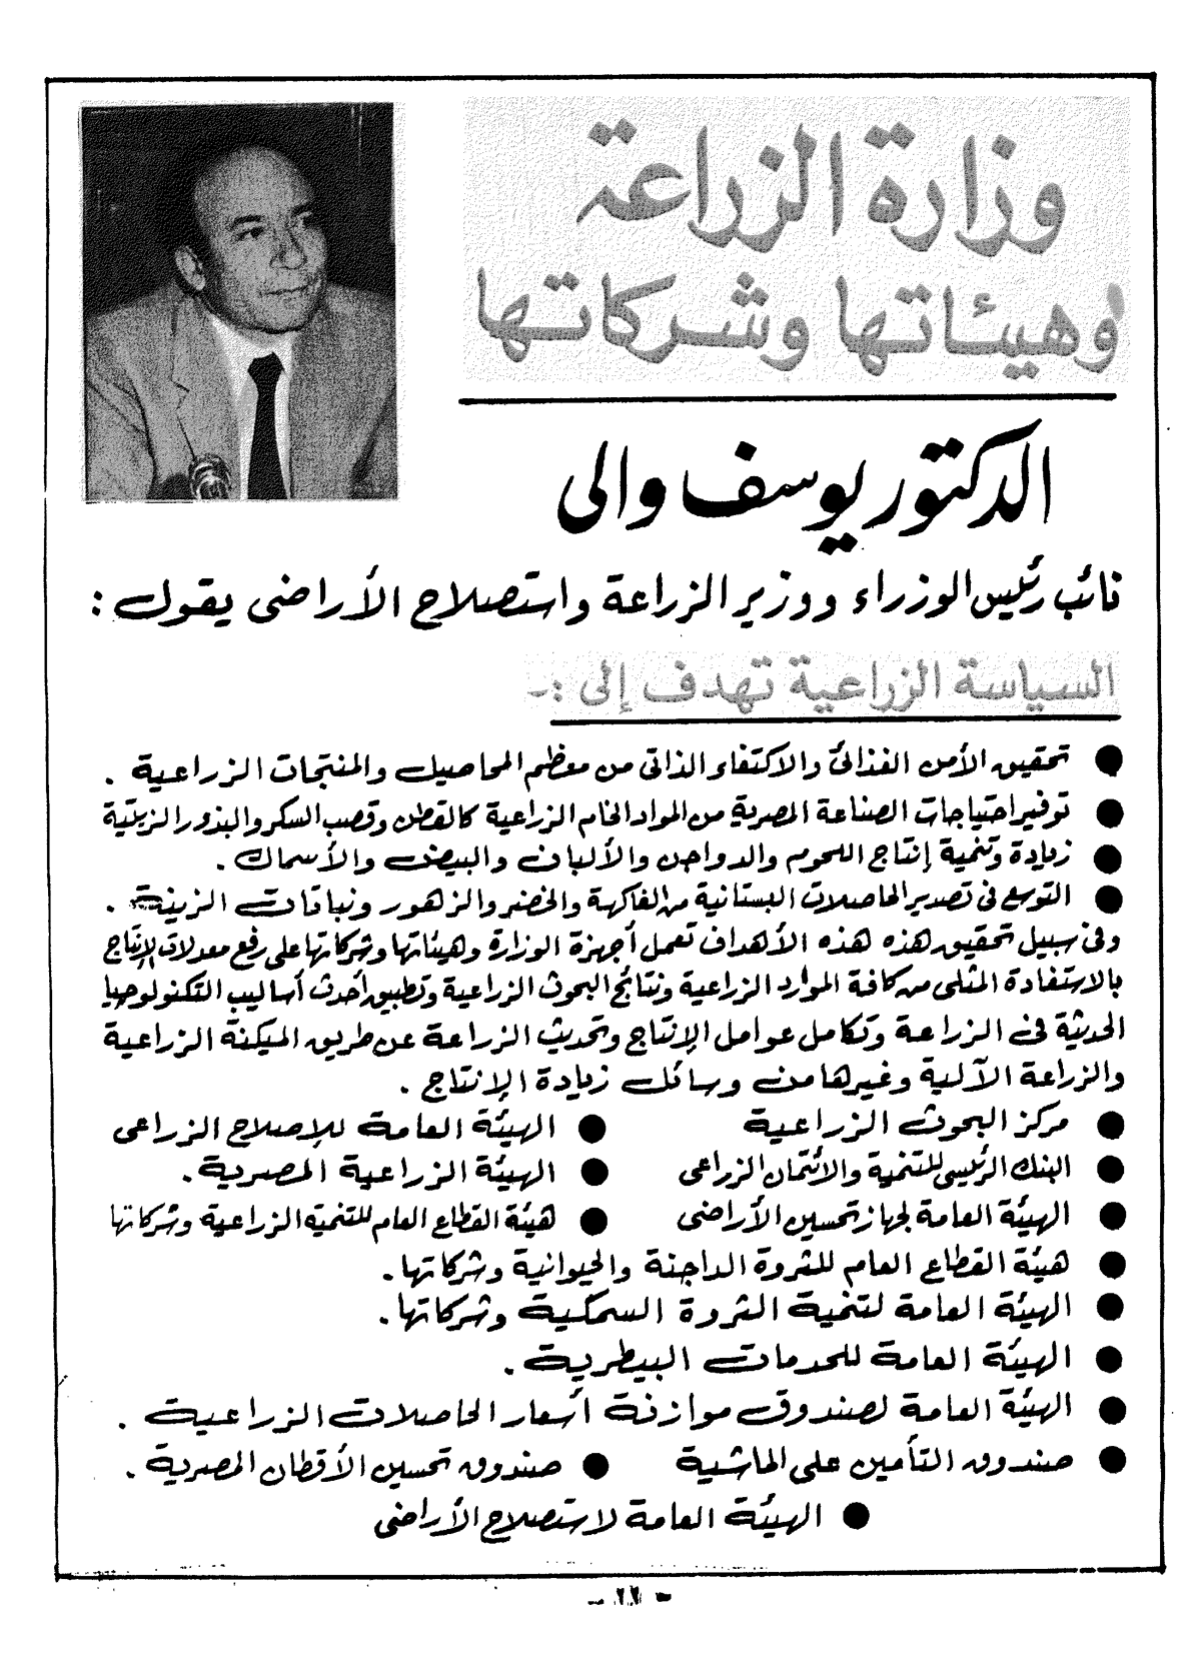 وزارة الزراعة
وهيئاتها وشركاتها
الدكتور يوسف والى
نائب رئيس الوزراء ووزير الزراعة واستصلاح الأراضى يقول :
السياسة الزراعية تهدف إلى :-
● تحقيق الأمن الغذائى والاكتفاء الذاتى من معظم المحاصيل والمنتجات الزراعية .
● توفير احتياجات الصناعة المصرية من المواد الخام الزراعية كالقطن وقصب السكر والبذور الزيتية
● زيادة وتنمية إنتاج اللحوم والدواجن والألبان والبيض والأسماك .
● التوسع فى تصدير الحاصلات البستانية من الفاكهة والخضر والزهور ونباتات الزينة .
وفى سبيل تحقيق هذه هذه الأهداف تعمل أجهزة الوزارة وهيئاتها وشركاتها على رفع معدلات الإنتاج
بالاستفادة المثلى من كافة الموارد الزراعية ونتائج البحوث الزراعية وتطبيق أحدث أساليب التكنولوجيا
الحديثة فى الزراعة وتكامل عوامل الإنتاج وتحديث الزراعة عن طريق الميكنة الزراعية
والزراعة الآلية وغيرها من وسائل زيادة الإنتاج .
● مركز البحوث الزراعية ● الهيئة العامة للإصلاح الزراعى
● البنك الرئيسى للتنمية والائتمان الزراعى ● الهيئة الزراعية المصرية .
● الهيئة العامة لجهاز تحسين الأراضى ● هيئة القطاع العام للتنمية الزراعية وشركاتها
● هيئة القطاع العام للثروة الداجنة والحيوانية وشركاتها .
● الهيئة العامة لتنمية الثروة السمكية وشركاتها .
● الهيئة العامة للخدمات البيطرية .
● الهيئة العامة لصندوق موازنة أسعار الحاصلات الزراعية .
● صندوق التأمين على الماشية ● صندوق تحسين الأقطان المصرية .
● الهيئة العامة لاستصلاح الأراضى